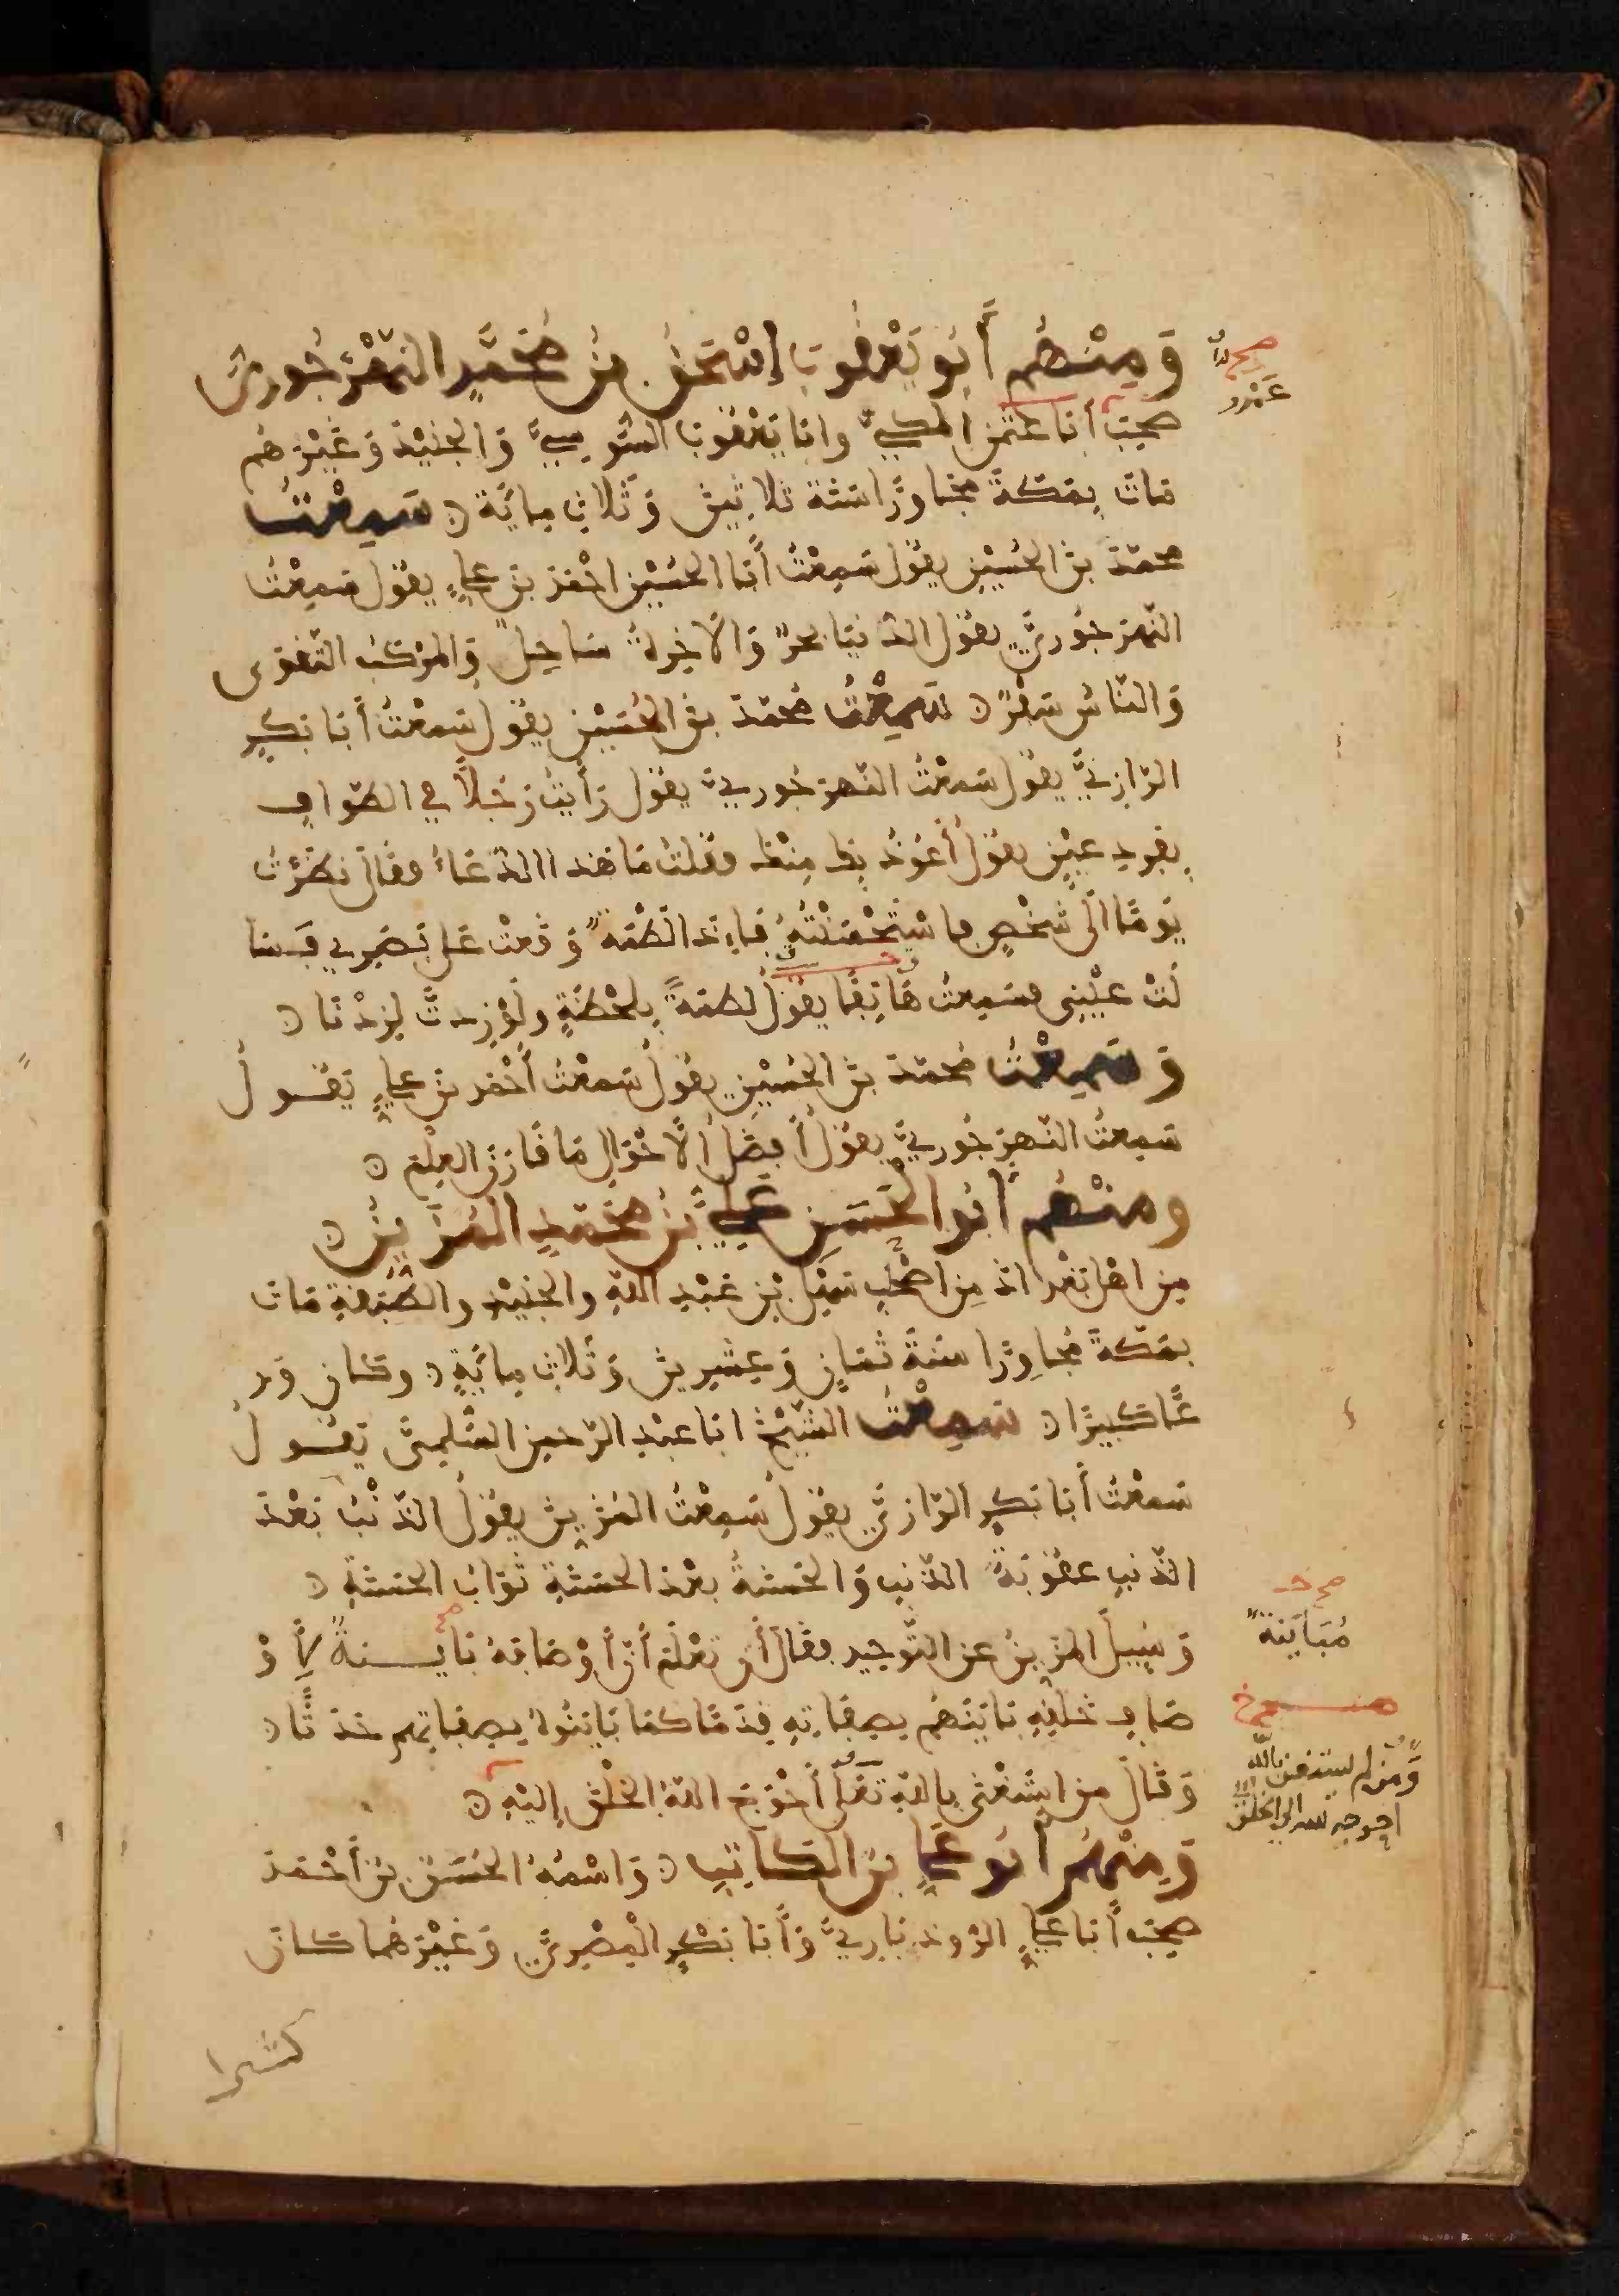 وَمِنْهُم أَبُو يَعْقُوبَ إِسْحَقُ بنُ مُحَمَّدٍ النَّهْرَجُورِيّ
صَحِبَ أبَا عثمن المكيَّ وابا يَعْقُوبَ السُّوسِيَّ وَالجُنَيْدَ وَغَيْرَهُم
مَاتَ بِمَكَّةَ مُجَاوِرًا سَنَةَ ثلاثِينَ وَثَلاثِ مِائَةٍ سَمِعْتُ
محمّدَ بنَ الحُسَيْنِ يقُول سَمِعْتُ أَبَا الحُسَيْنِ احْمَدَ بنَ عليٍّ يقُول سَمِعْتُ
النّهرَجُورِيَّ يقُول الدُّنيَا بحرٌ وَالآخِرةُ سَاحِلٌ وَالمَرْكَبُ التَّقْوَى
وَالنّاسُ سَفْرٌ سَمِعْتُ مُحَمّدَ بنَ الحُسَيْنِ يقُول سَمِعْتُ أَبَا بَكْرٍ
الرّازِيَّ يقُول سَمِعْتُ النّهرَجُورِيَّ يقُول رَأَيْتُ رَجُلاً في الطّوَافِ
بِفَرْدِ عَيْنٍ يقُولُ أَعُوذُ بِكَ مِنْكَ فقُلتُ مَا هَذا الدُّعَاءُ فقَالَ نَظَرْتُ
يَوْمًا إلَى شَخْصٍ فاسْتَحْسَنْتُهُ فَإِذَا لَطْمَةٌ وَقَعَتْ عَلَى بَصَرِي فَسَا
لَتْ عَيْنِي فسَمِعتُ هَاتِفًا يقُولُ لَطْمَةٌ بِلَحْظَةٍ ولَوْ زِدتَّ لَزِدْنَا
وَسَمِعْتُ مُحَمّدَ بنَ الحُسَيْنِ يقُولُ سَمِعْتُ أَحْمَدَ بنَ عليٍّ يَقُولُ
سَمِعتُ النّهرَجُورِيَّ يقُولُ أَفْضَلُ الأَحْوَالِ مَا قَارَنَ العِلْمَ
ومِنْهُم أَبُو الحَسَنِ عَلِيُّ بْنُ مُحَمَّدٍ المُزَيِّنُ
مِن اهْل بَغْدَاذَ مِن اصْحَبِ سَهْلِ بْنِ عَبْدِ اللهِ والجُنَيْدِ والطَّبَقةِ مَاتَ
بِمَكّةَ مُجَاوِرًا سَنَةَ ثَمَانٍ وَعِشْرِينَ وَثَلاثِ مِائَةٍ وكانَ وَرِ
عًا كبيرًا سَمِعْتُ الشّيْخَ ابا عبْدِ الرّحمن السُّلَمِيَّ يَقُولُ
سَمِعْتُ أَبَا بَكْرٍ الرّازِيَّ يقُولُ سَمِعْتُ المُزَيِّنَ يقُولُ الذّنْبُ بَعْدَ
الذّنبِ عقُوبَةُ الذّنبِ وَالحَسَنةُ بَعْدَ الحَسَنَةِ ثَوَابُ الحَسَنَةِ
وَسُئِلَ المُزَيِّنُ عنِ التَّوحِيدِ فقَالَ أَن تَعْلَمَ أَنَّ أَوْصَافَهُ بَايِنةٌ لأَوْ
صَافِ خَلْقِهِ بَايَنَهُم بِصِفَاتِهِ قِدَمًا كمَا بَايَنُوهُ بِصِفَاتِهم حَدَثًا
وَقَالَ مَنِ اسْتَغْنَى بِاللهِ تَعَلَى أَحْوَجَ اللهُ الخَلْقَ إِلَيْهِ
وَمِنْهُمْ أَبُو عَلِيٍّ بْنُ الكَاتِبِ وَاسْمُهُ الحَسَنُ بنُ أَحْمَدَ
صَحِبَ أَبَا عَلِيٍّ الرُّوذبَارِيَّ وَأَبَا بَكْرٍ الْمِصْرِيَّ وَغَيْرَهُما كَانَ
كبيرا
صح
عَمْرو
صح
مُبَايَنَةٌ
صح
وَمن لم يستغن بالله
احوجه الله الى الخلق